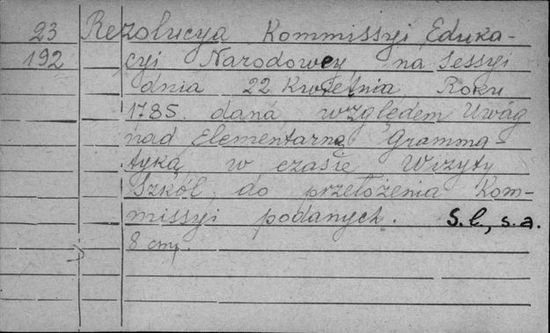 23 Rezolucya Kommissyi Eduka-
192 cyi Narodowey na Sessyi
dnia 22 Kwietnia Roku
1785. dana, względem Uwag
nad Elementarną Gramma-
tyką w czasie Wizyty
Szkół do przełożenia Kom-
missyi podanych. S.l., s.a.
8 cmp.